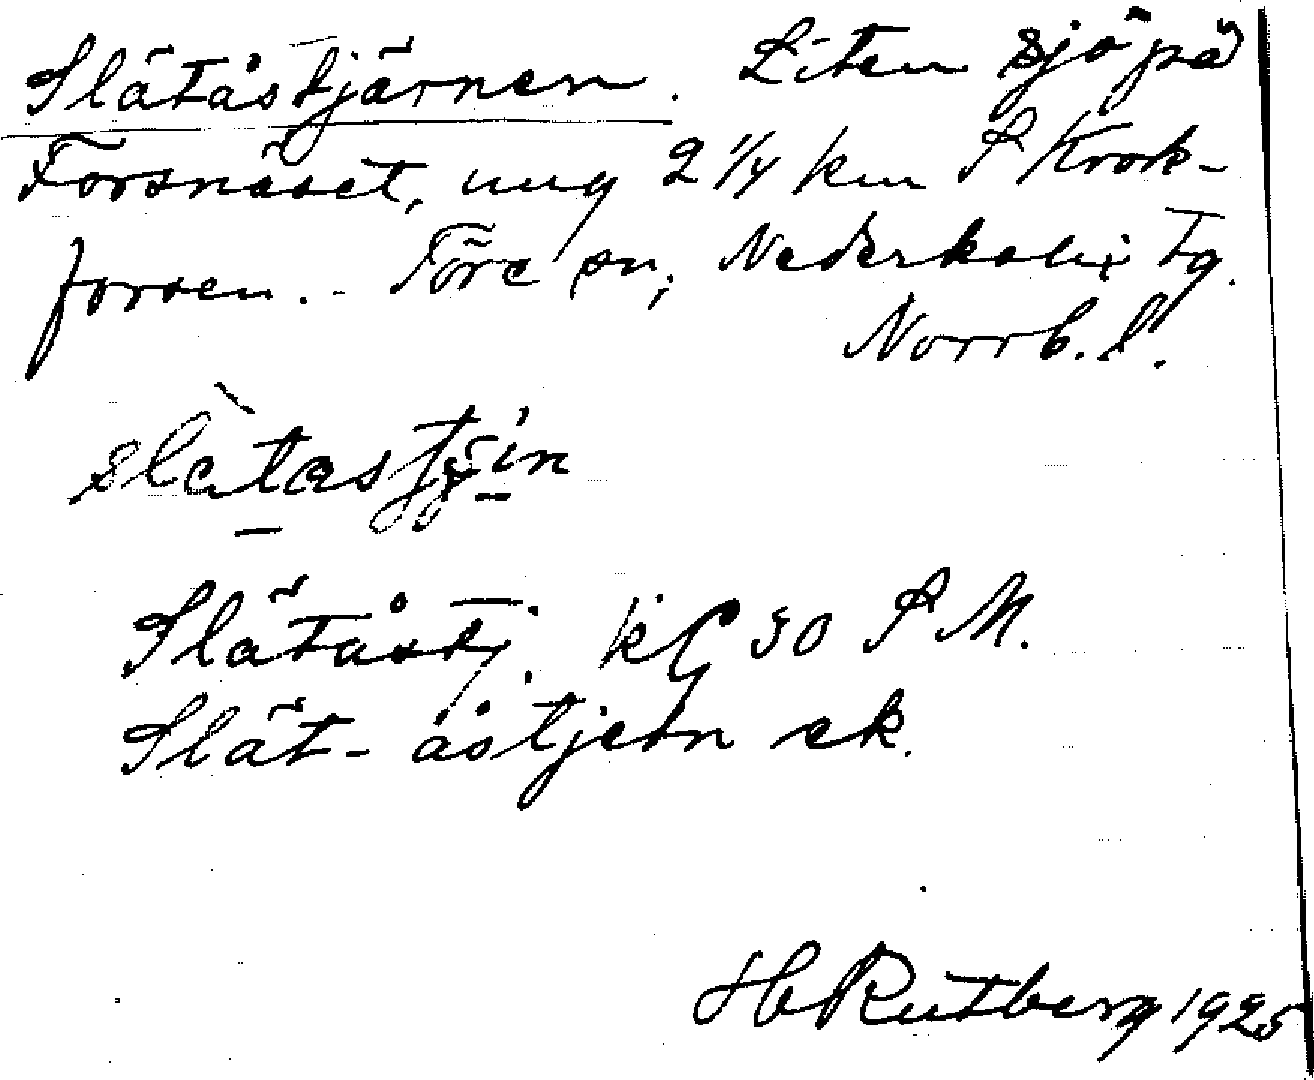 Slätåstjärnen. Liten sjö på
Forsnäset, ung 2 1/4 km S Krok-
forsen. - Töre sn, Nederkalix tg.
Norrb. l.
Slätåstj. kG 50 S M.
Slät-åstjern ek.
H Rutberg 1925